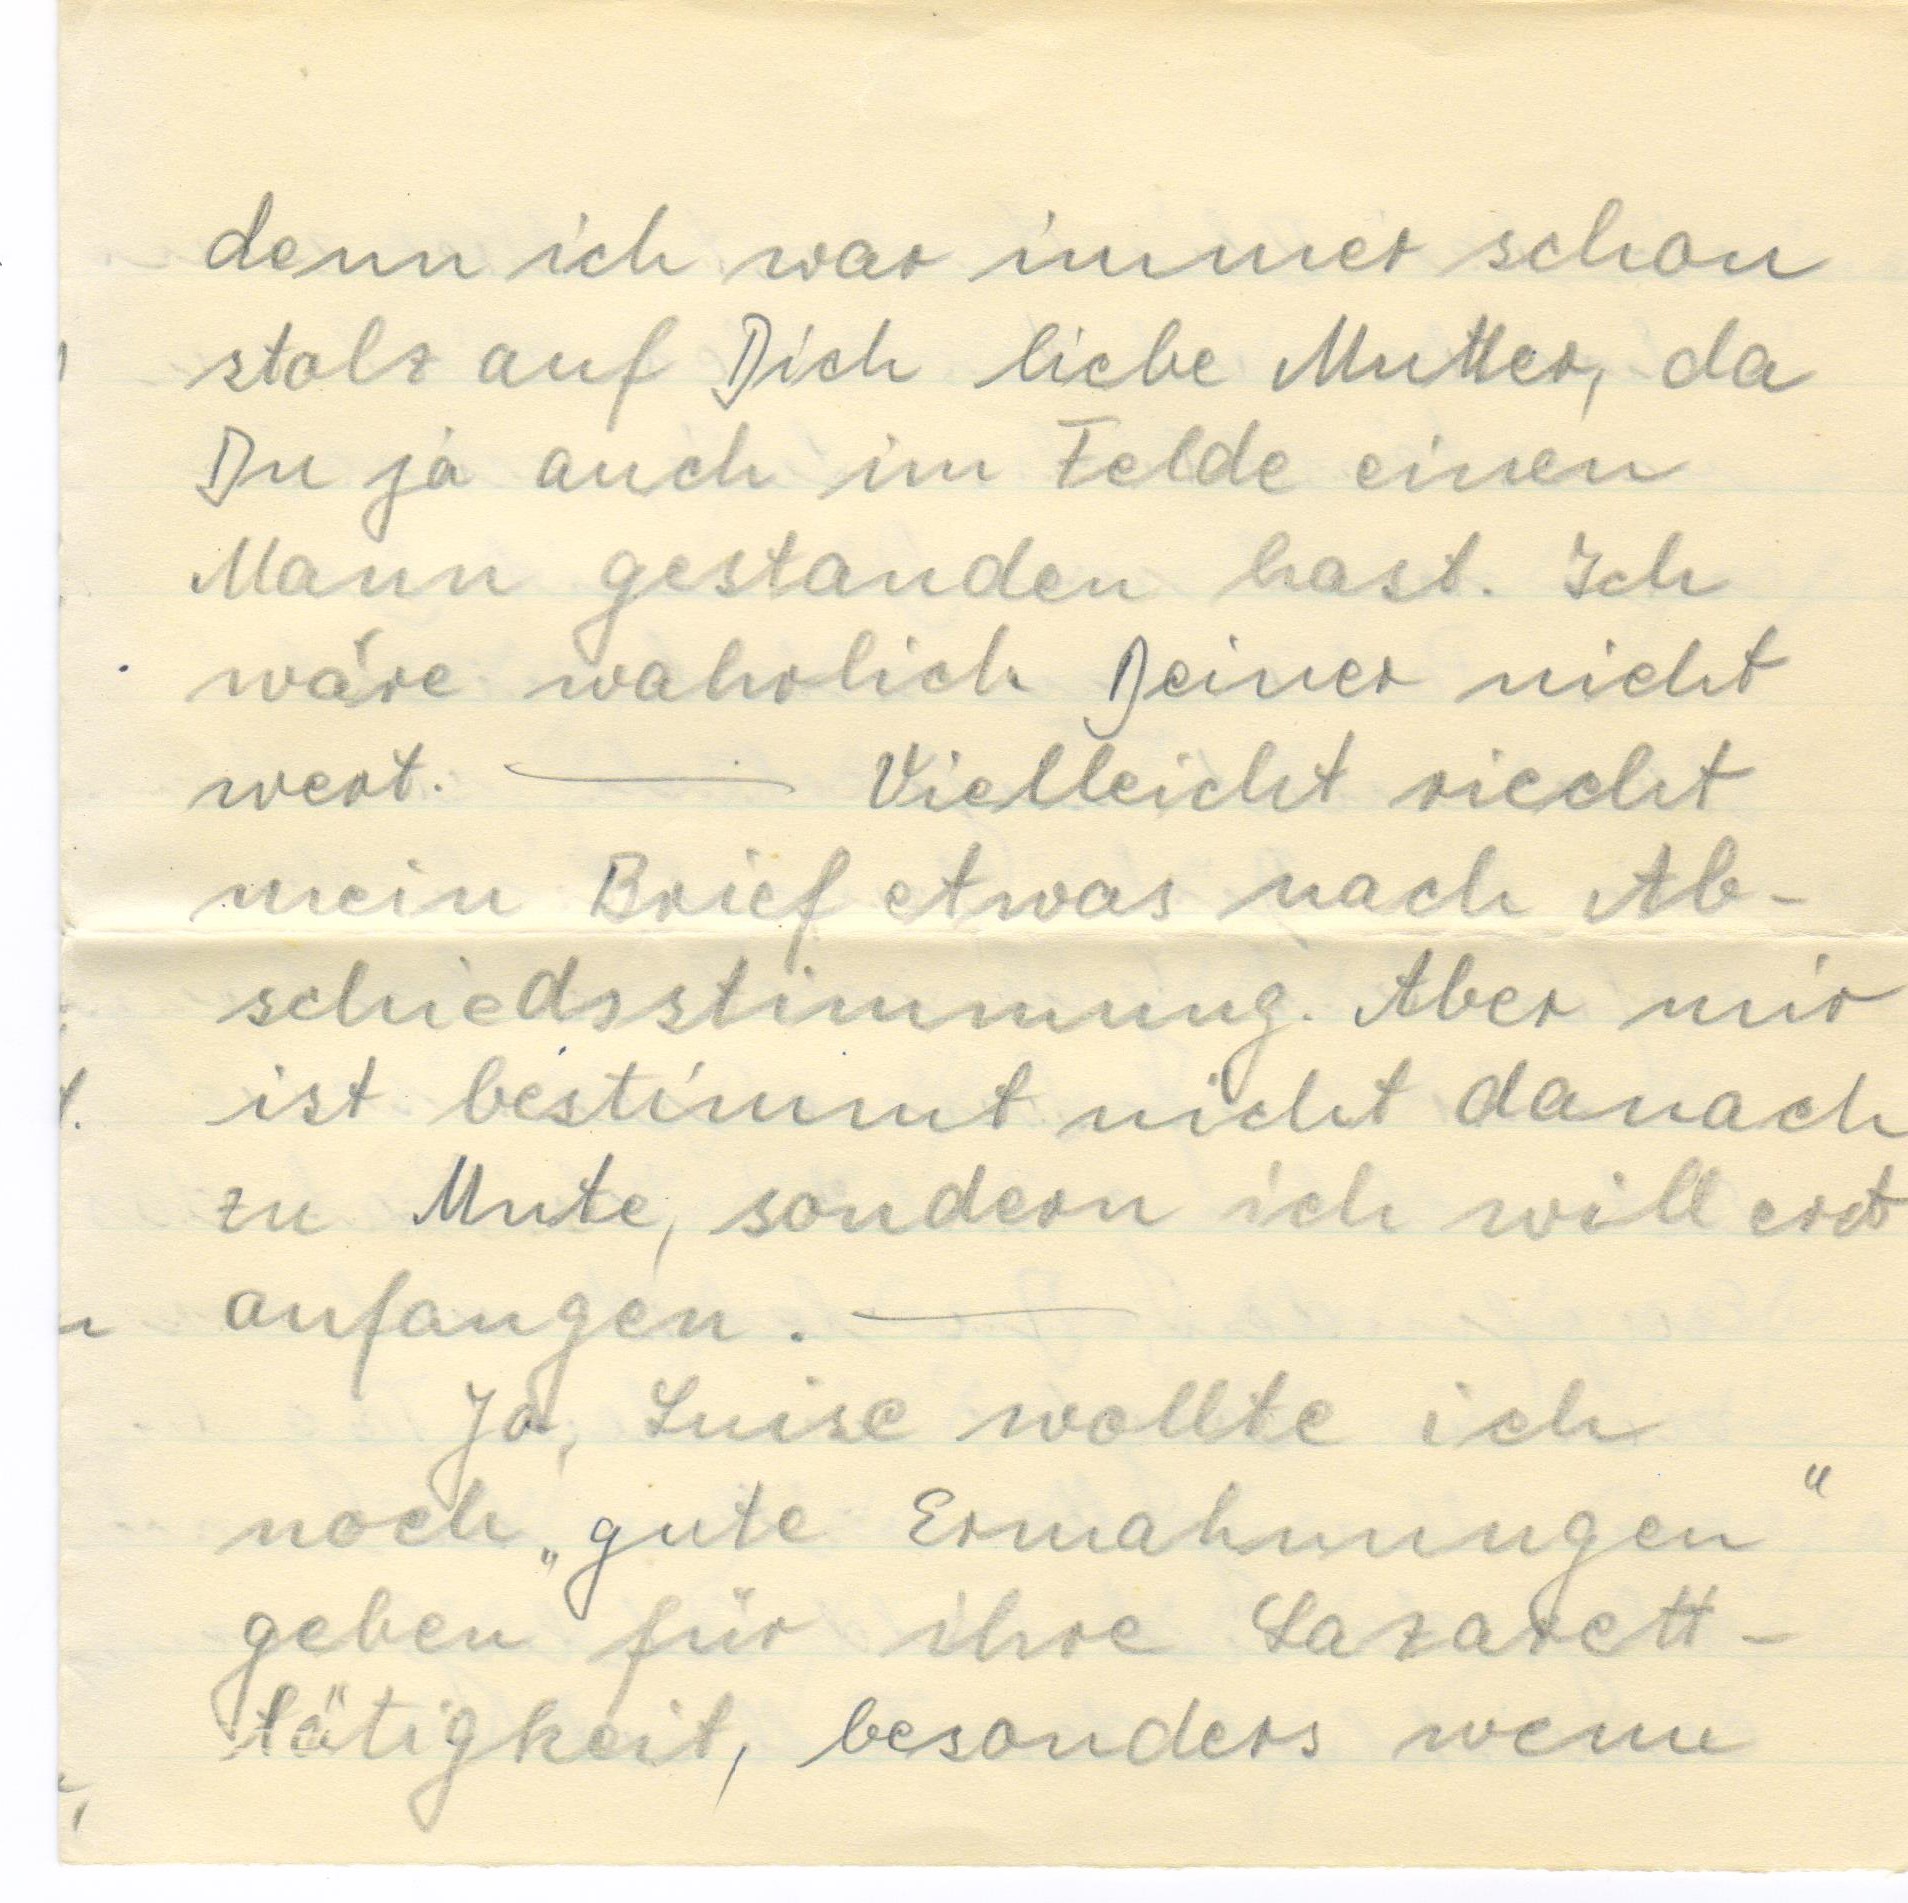 denn ich war immer schon
stolz auf Dich liebe Mutter, da
Du ja auch im Felde einen
Mann gestanden hast. Ich
wäre wahrlich Deiner nicht
wert. — Vielleicht riecht
mein Brief etwas nach Ab-
schiedsstimmung. Aber mir
ist bestimmt nicht danach
zu Mute, sondern ich will erst
anfangen. —
Ja, Luise wollte ich
noch „gute Ermahnungen“
geben für ihre Lazarett-
tätigkeit, besonders wenn